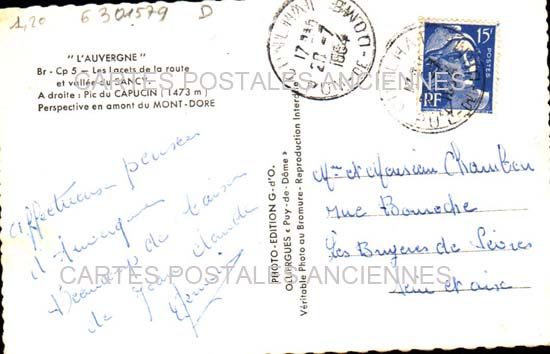 1,20 6301579 D
"L'AUVERGNE"
Br - Cp 5 - Les Lacets de la route
et vallée du SANCY
A droite : Pic du CAPUCIN (1473 m)
Perspective en amont du MONT-DORE
affectueuses pensées
d'Auvergne
de
de Jean Claude
PHOTO-EDITION G-d'O.
OLLIERGUES « Puy-de-Dôme »
Véritable Photo au Bromure - Reproduction Interdite
17
20 -7
PUY-DE-DO
15F
POSTES
RF
Mme et Monsieur Chambon
rue
Les Bruyères de Sèvres
Seine et oise
CARTES POSTALES ANCIENNES
CARTES POSTALES ANCIENNES